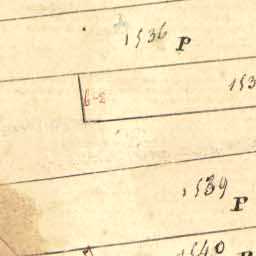 1536 P
153
1539 P
1540 P